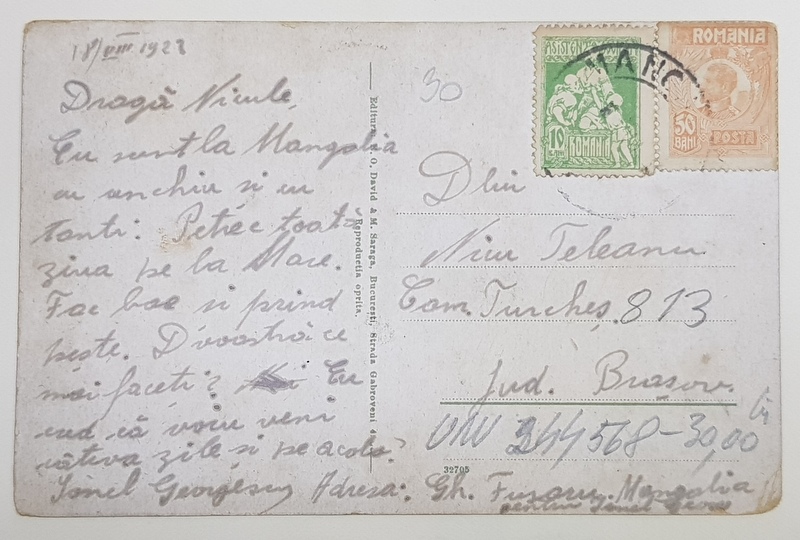 18/VIII 1923
Dragă Nicule,
Eu sunt la Mangalia
cu unchiu si cu
tanti: Petrec toată
ziua pe la Mare.
Fac bae si prind
peşte. D'voastră ce
mai faceti? Eu
cred că voiu veni
câtiva zile si pe acolo.
Ionel Georgescu Adresa: Gh. Fusaru. Mangalia
pentru Ionel
Editura O. David & M. Saraga, Bucuresti, Strada Gabroveni 4
Reproductia oprita.
30
ASISTENTA SOCIALA
10
BANI
ROMANIA
ROMANIA
50
BANI
POSTA
MANG
Dlui
Nicu Teleanu
Com. Turcheş. 813
Jud. Braşov.
UNV 344568-30,00
32705